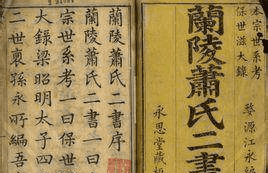 本宗世系考
保世滋大錄
婺源江永
蘭陵蕭氏二書
永思堂藏板
蘭陵蕭氏二書序
蘭陵蕭氏二書一曰
宗世系考一曰保世
大錄梁昭明太子四
二世裔孫永所編吾